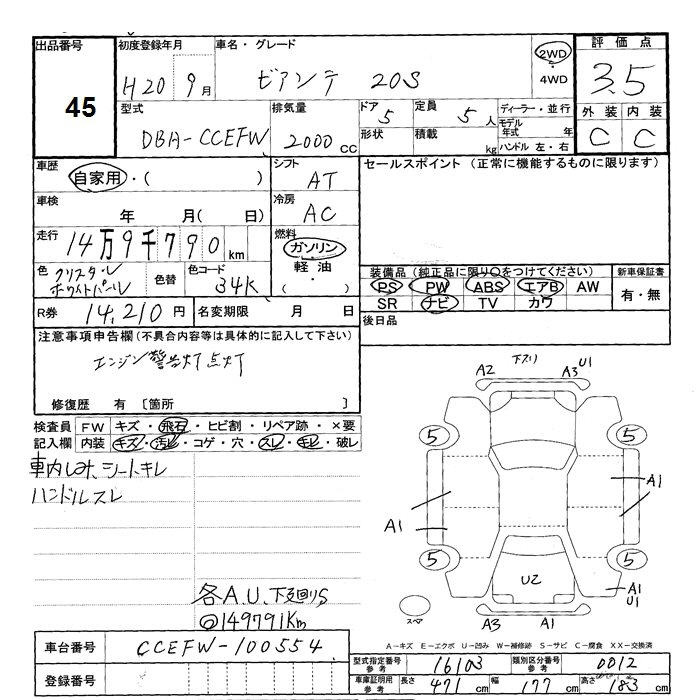 出品番号 初度登録年月 車名・グレード 評価点
45 H20 9月 ビアンテ 20S 2WD・4WD 3.5
型式 排気量 ドア 5 定員 5人 ディーラー・並行 外装 内装
DBA-CCEFW 2000cc 形状 積載 kg モデル年式 年 C C
ハンドル 左・右
車歴 シフト セールスポイント (正常に機能するものに限ります)
自家用・( ) AT
車検 冷房
年 月( 日) AC
走行 燃料
14万9千790km ガソリン
色 クリスタルホワイトパール 色替 色コード 34K 軽油 ・( )
装備品 (純正品に限り○をつけてください) 新車保証書
PS PW ABS エアB AW 有・無
SR ナビ TV カワ
R券 14,210円 名変期限 月 日 後日品
注意事項申告欄 (不具合内容等は具体的に記入して下さい)
エンジン警告灯点灯
修復歴 有 [箇所 ]
検査員 FW キズ・飛石・ヒビ割・リペア跡・×要
記入欄 内装 キズ・汚レ・コゲ・穴・スレ・キレ・破レ
車内しみ、シートキレ
ハンドルスレ
各A.U、下廻りS
@149791Km
下スリ
A2 A3 U1
5 5
A1 A1
5 5
U2 A1 U1
スペア A3 A1
A-キズ E-エクボ U-凹み W-補修跡 S-サビ C-腐食 XX-交換済
車台番号 CCEFW-100554 型式指定番号 参考 16103 類別区分番号 参考 0012
登録番号 車庫証明用 参考 長さ 471cm 幅 177cm 高さ 183cm